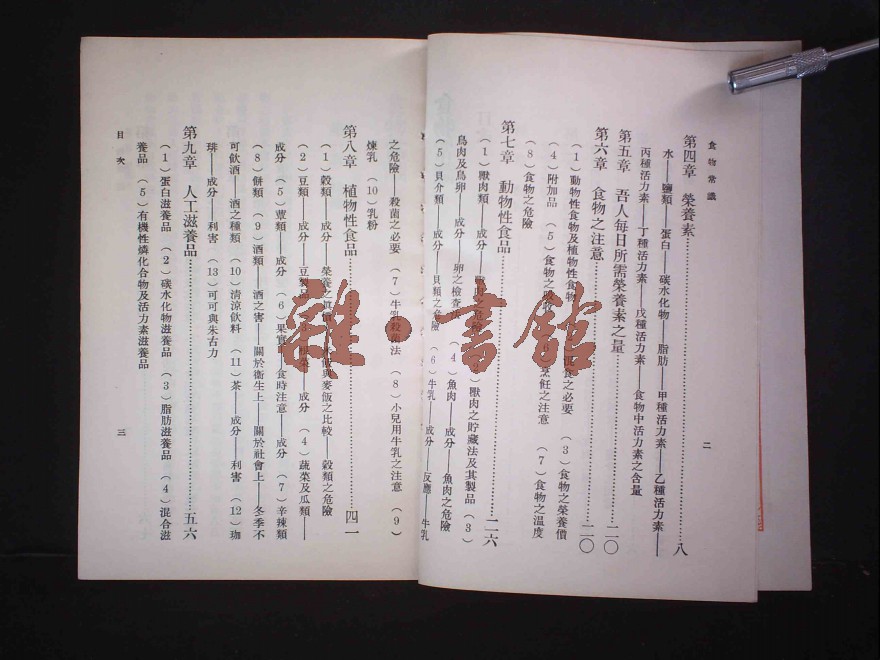 食物常識
第四章 榮養素……八
水——鹽類——蛋白——碳水化物——脂肪——甲種活力素——乙種活力素——
丙種活力素——丁種活力素——戊種活力素——食物中活力素之含量
第五章 吾人每日所需榮養素之量……二〇
第六章 食物之注意……二〇
(1)動物性食物及植物性食物 食之必要 (3)食物之榮養價
(4)附加品 (5)食物之吸 烹飪之注意 (7)食物之溫度
(8)食物之危險
第七章 動物性食品……二六
(1)獸肉類——成分——獸肉之危險 獸肉之貯藏法及其製品 (3)
鳥肉及鳥卵——成分——卵之檢查法 (4)魚肉——成分——魚肉之危險
(5)貝介類——成分——貝類之危險 (6)牛乳——成分——反應——牛乳
二
之危險——殺菌之必要 (7)牛乳殺菌法 (8)小兒用牛乳之注意 (9)
煉乳 (10)乳粉
第八章 植物性食品……四一
(1)穀類——成分——榮養之真價 飯與麥飯之比較——穀類之危險
(2)豆類——成分——豆製品 成分 (4)蔬菜及瓜類——
成分 (5)蕈類——成分 (6)果實 食時注意——成分 (7)辛辣類
(8)餅類 (9)酒類——酒之害——關於衛生上——關於社會上——冬季不
可飲酒——酒之種類 (10)清涼飲料 (11)茶——成分——利害 (12)珈
琲——成分——利害 (13)可可與朱古力
第九章 人工滋養品……五六
(1)蛋白滋養品 (2)碳水化物滋養品 (3)脂肪滋養品 (4)混合滋
養品 (5)有機性燐化合物及活力素滋養品
目次
三
雜·書館